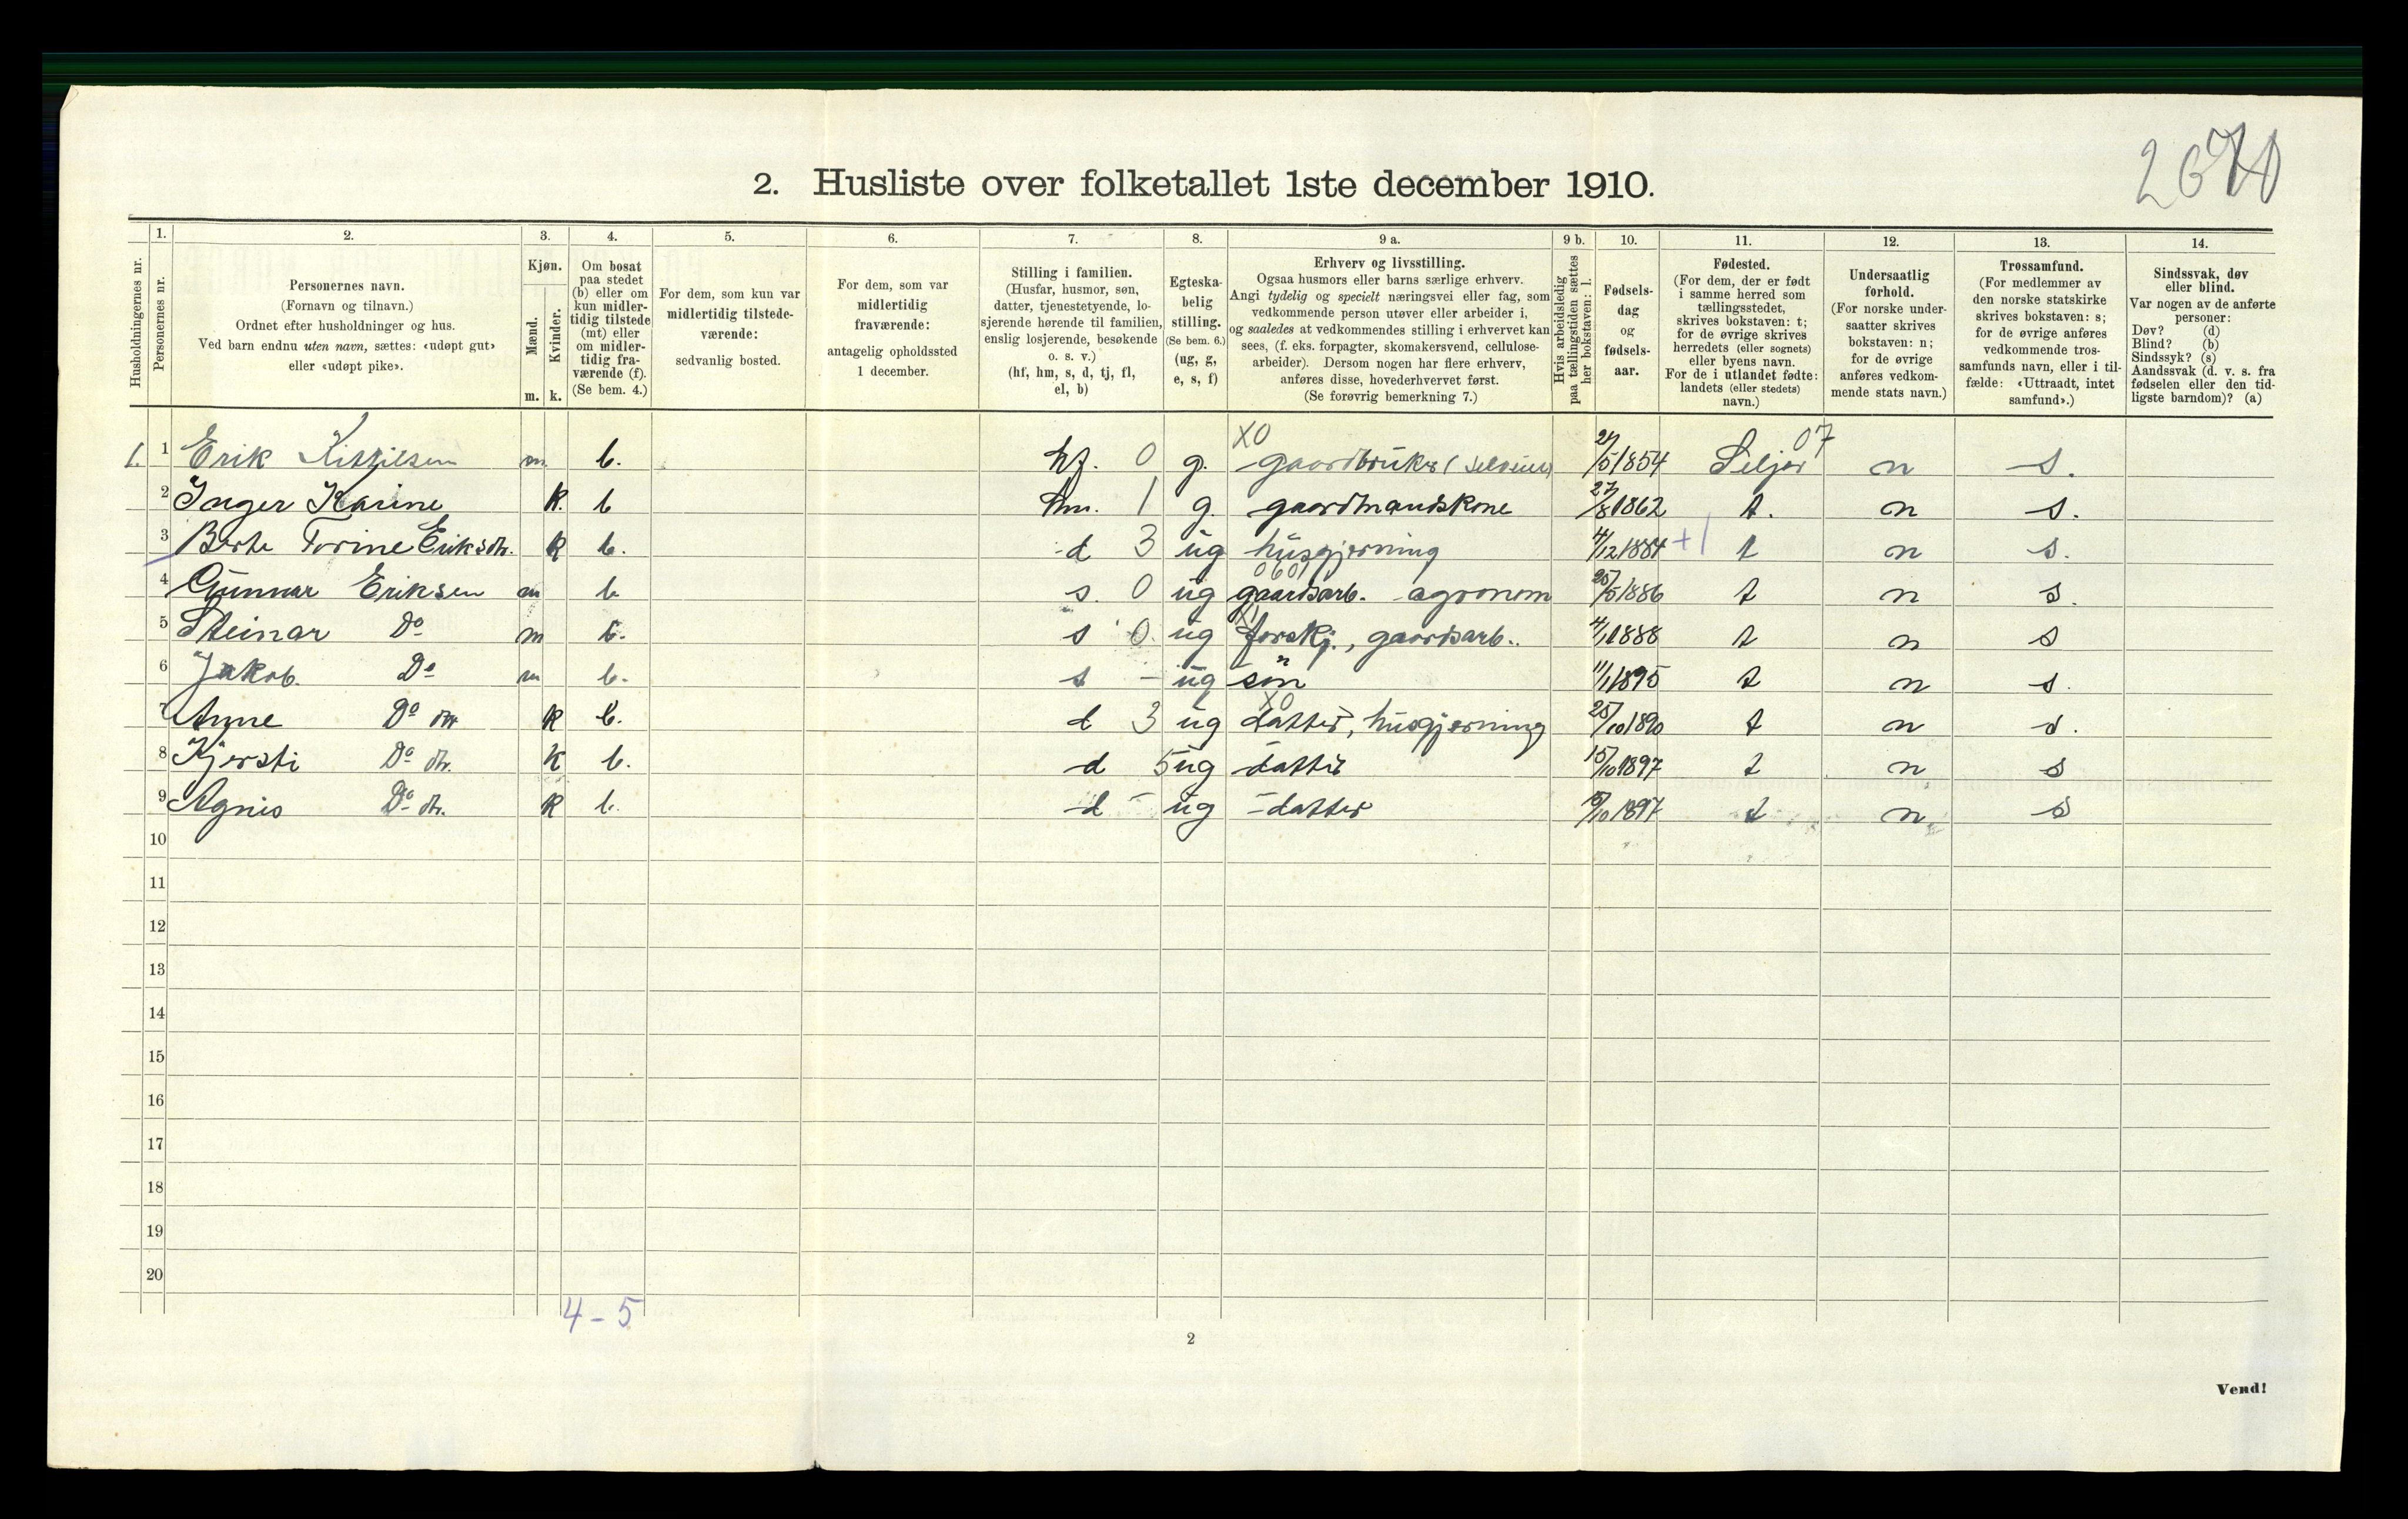 2670
2. Husliste over folketallet 1ste december 1910.
Husholdningernes nr.
1.
Personernes nr.
2.
Personernes navn.
(Fornavn og tilnavn.)
Ordnet efter husholdninger og hus.
Ved barn endnu uten navn, sættes: «udøpt gut»
eller «udøpt pike».
3.
Kjøn.
Mænd.
Kvinder.
m. k.
4.
Om bosat
paa stedet
(b) eller om
kun midler-
tidig tilstede
(mt) eller
om midler-
tidig fra-
værende (f).
(Se bem. 4.)
5.
For dem, som kun var
midlertidig tilstede-
værende:
sedvanlig bosted.
6.
For dem, som var
midlertidig
fraværende:
antagelig opholdssted
1 december.
7.
Stilling i familien.
(Husfar, husmor, søn,
datter, tjenestetyende, lo-
sjerende hørende til familien,
enslig losjerende, besøkende
o. s. v.)
(hf, hm, s, d, tj, fl,
el, b)
8.
Egteska-
belig
stilling.
(Se bem. 6.)
(ug, g,
e, s, f)
9 a.
Erhverv og livsstilling.
Ogsaa husmors eller barns særlige erhverv.
Angi tydelig og specielt næringsvei eller fag, som
vedkommende person utøver eller arbeider i,
og saaledes at vedkommendes stilling i erhvervet kan
sees, (f. eks. forpagter, skomakersvend, cellulose-
arbeider). Dersom nogen har flere erhverv,
anføres disse, hovederhvervet først.
(Se forøvrig bemerkning 7.)
9 b.
Hvis arbeidsledig
paa tællingstiden sættes
her bokstaven: l.
10.
Fødsels-
dag
og
fødsels-
aar.
11.
Fødested.
(For dem, der er født
i samme herred som
tællingsstedet,
skrives bokstaven: t;
for de øvrige skrives
herredets (eller sognets)
eller byens navn.
For de i utlandet fødte:
landets (eller stedets)
navn.)
12.
Undersaatlig
forhold.
(For norske under-
saatter skrives
bokstaven: n;
for de øvrige
anføres vedkom-
mende stats navn.)
13.
Trossamfund.
(For medlemmer av
den norske statskirke
skrives bokstaven: s;
for de øvrige anføres
vedkommende tros-
samfunds navn, eller i til-
fælde: «Uttraadt, intet
samfund».)
14.
Sindssvak, døv
eller blind.
Var nogen av de anførte
personer:
Døv? (d)
Blind? (b)
Sindssyk? (s)
Aandssvak (d. v. s. fra
fødselen eller den tid-
ligste barndom)? (a)
X0 07
1. 1 Erik Kittilsen m. b. hf. 0 g. gaardbruker (selveier) 24/5 1854 Seljor n s.
2 Inger Karine k. b hm. 1 g. gaardmandskone 27/8 1862 t. n s.
3 Berte Torine Eriksdtr. k b. d 3 ug husgjerning 4/12 1884 +1 t n s.
060
4 Gunnar Eriksen m b s. 0 ug gaardsarb. agronom 25/5 1886 t n s.
X1
5 Steinar Do m b. s 0 ug forskj., gaardsarb. 4/1 1888 t n s
6 Jakob. Do m b. s - ug søn 11/1 1895 t n s.
X0
7 Anne Do dtr k b. d 3 ug datter, husgjerning 25/10 1890 t n s.
8 Kjersti Do dtr. k b. d 5 ug datter 15/10 1897 t n s
9 Agnis Do dtr. k b. d - ug datter 15/10 1897 t n s
10
11
12
13
14
15
16
17
18
19
20
4-5
2
Vend!